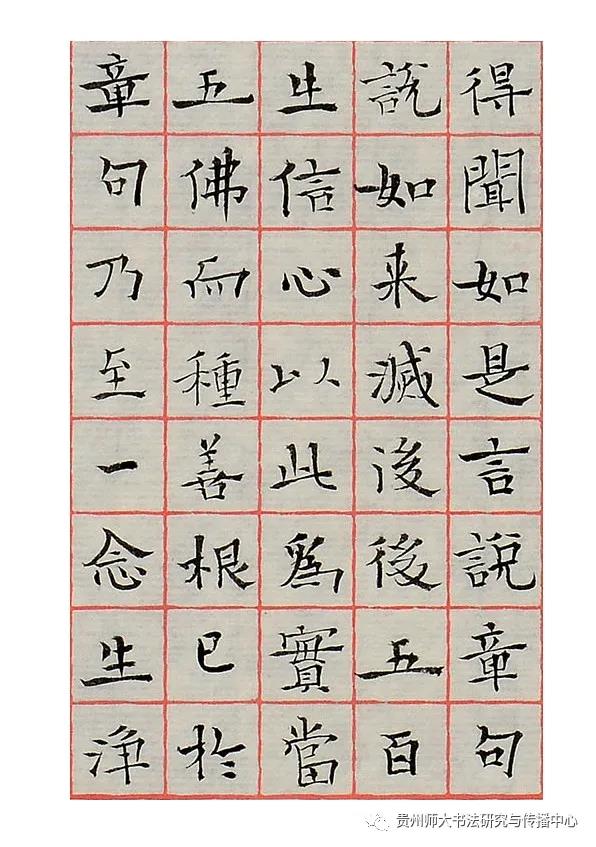 得聞如是言說章句
說如来滅後後五百
生信心以此爲實當
五佛而種善根已於
章句乃至一念生淨
贵州师大书法研究与传播中心